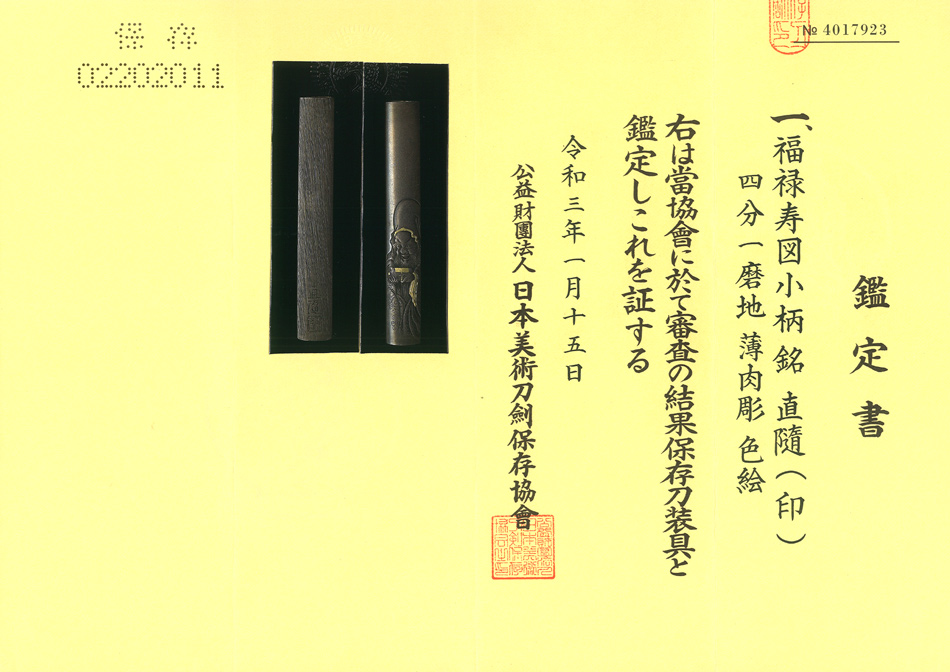 鑑定書
№ 4017923
一、福禄寿図小柄 銘 直隨(印)
四分一磨地 薄肉彫 色絵
右は當協會に於て審査の結果保存刀装具と
鑑定しこれを証する
令和三年一月十五日
公益財團法人日本美術刀劍保存協會
保存
02202011